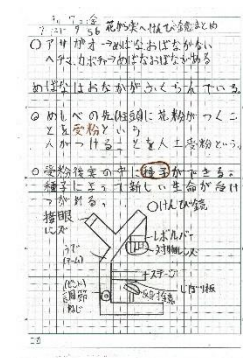 花から実へ けんび鏡まとめ
○アサガオ→めばなおばながない
ヘチマ、カボチャ→めばなおばながある
めばなはおばながふくらんでいる。
◎めしべの先(柱頭)に花粉がつくこ
とを受粉という
人がつけることを人工受粉という。
○受粉後実の中に種子ができる。
種子によって新しい生命が受け
つがれる。
○けんび鏡
接眼
レンズ
うで
(アーム)
レボルバー
対物レンズ
ステージ
調節
ねじ
反射鏡
しぼり板